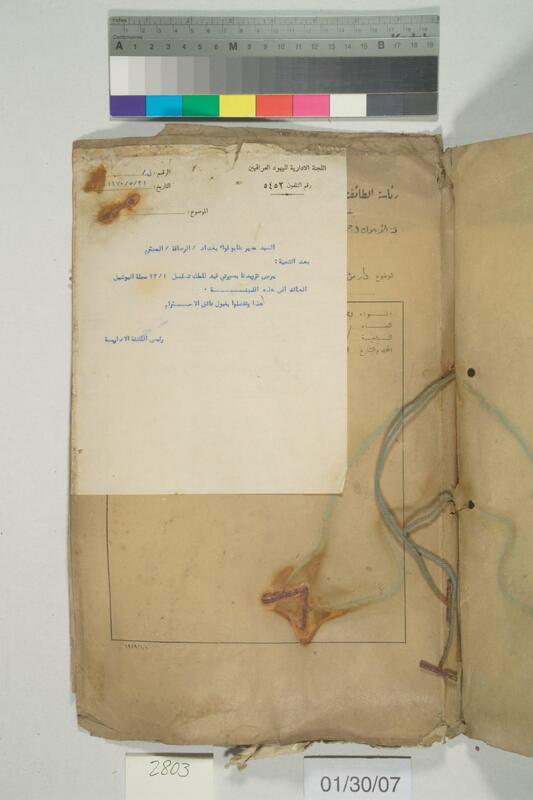 inches
Centimetres
A 1 2 3 4 5 6 M 8 9 10 11 12 13 14 15 B 17 18 19
اللجنة الادارية لليهود العراقيين
رقم التلفون ٥٤٥٢
الرقم :
التاريخ: ١٩٧٠/٥/٢١
الموضوع:
السيد مدير طابو لواء بغداد / الرصافة / المحترم
بعد التحية :
يرجى تزويدنا بصورتي قيد للملك تسلسل ٢٢/١ محلة
العائد الى هذه الطائفة ٠
هذا وتفضلوا بقبول فائق الاحترام
رئيس اللجنة الادارية
رئاسة الطائفة
موضوع
اللواء
القضاء
الناحية
١٩٤٩/١/١
2803
01/30/07